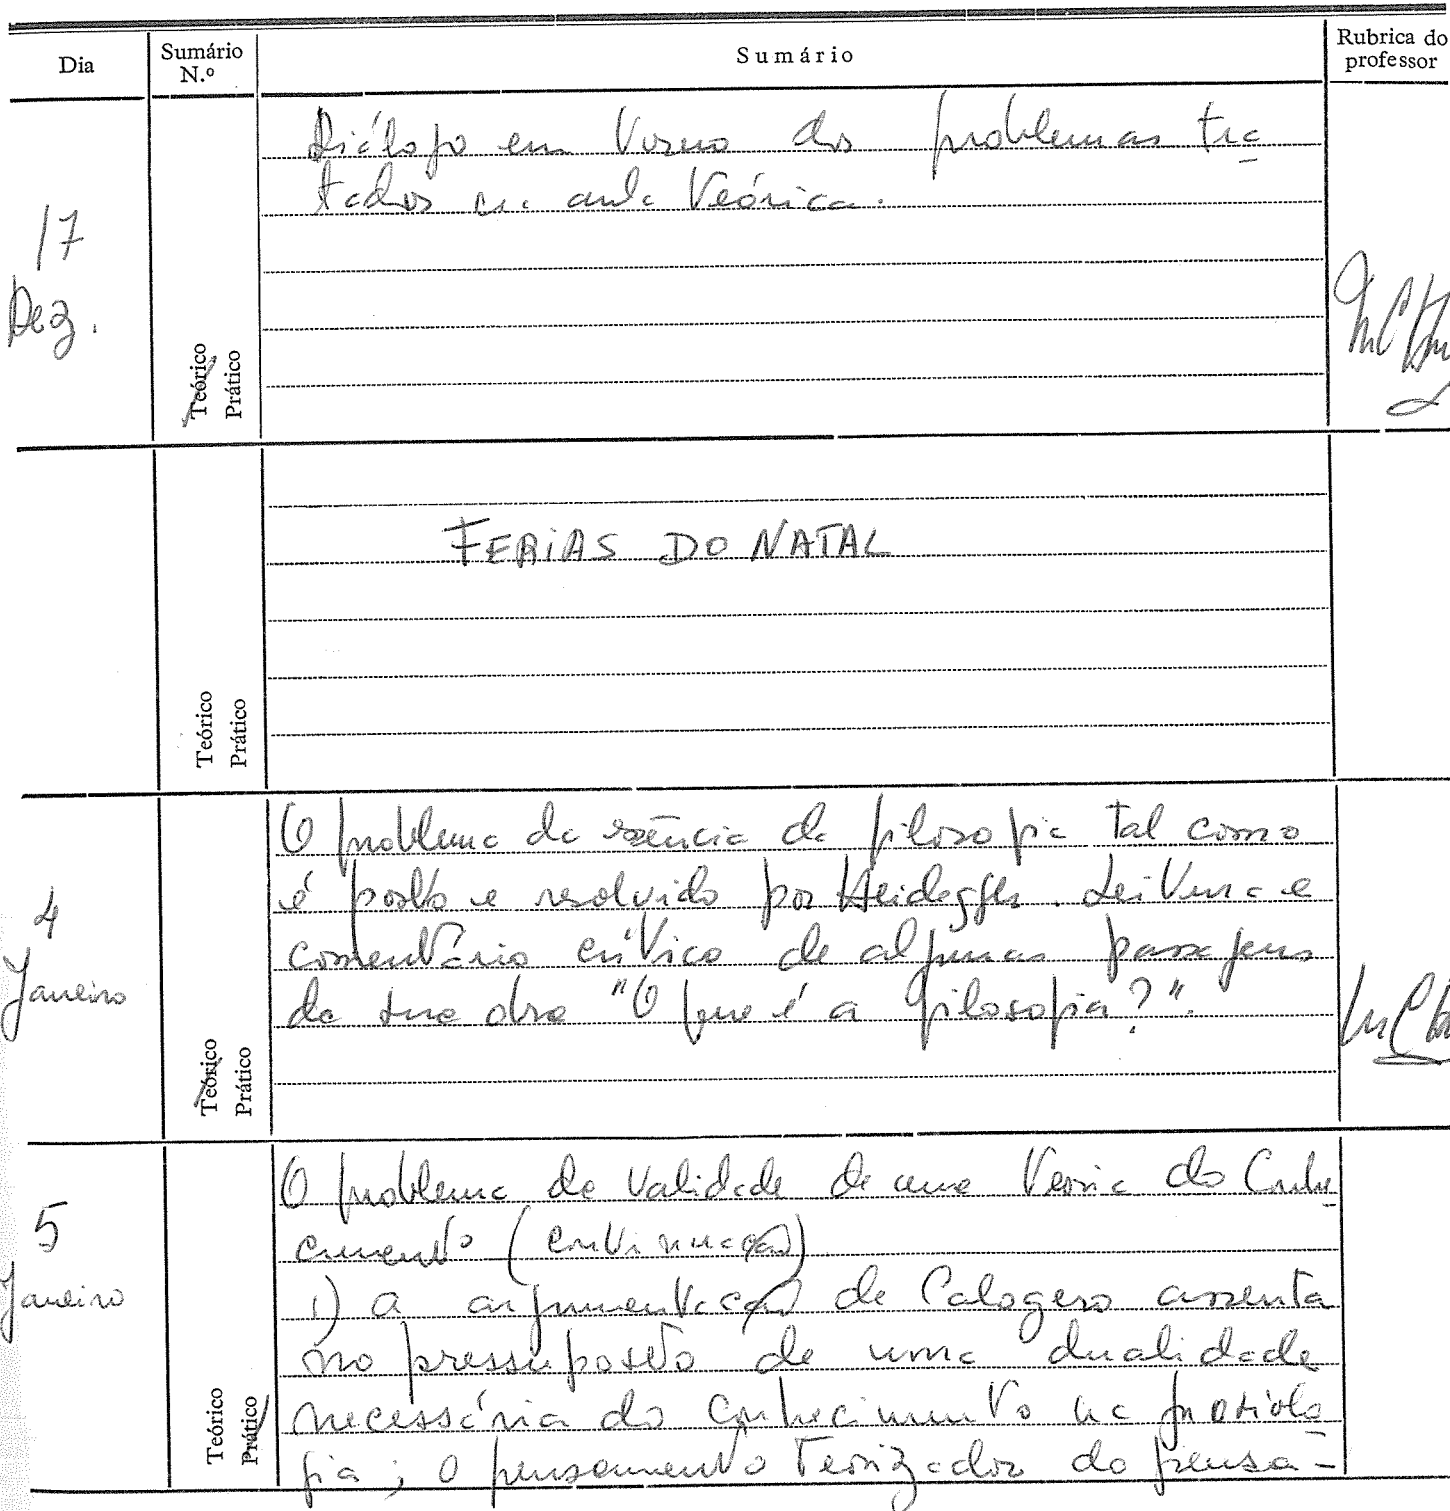 Dia
Sumário N.º
Sumário
Rubrica do professor
17 Dez.
Teórico
Prático
Diálogo em torno dos problemas tra
tados na aula teórica.
Teórico
Prático
FERIAS DO NATAL
4 Janeiro
Teórico
Prático
O problema da essência da filosofia tal como
é posto e resolvido por Heidegger. Leitura e
comentário crítico de algumas passagens
da sua obra "O que é a filosofia?".
5 Janeiro
Teórico
Prático
O problema da validade de uma Teoria do Conhe
cimento (continuação)
1) a argumentação de Calogero assenta
no pressuposto de uma dualidade
necessária do conhecimento na gnosiolo
gia; o pensamento teorizador do pensa-